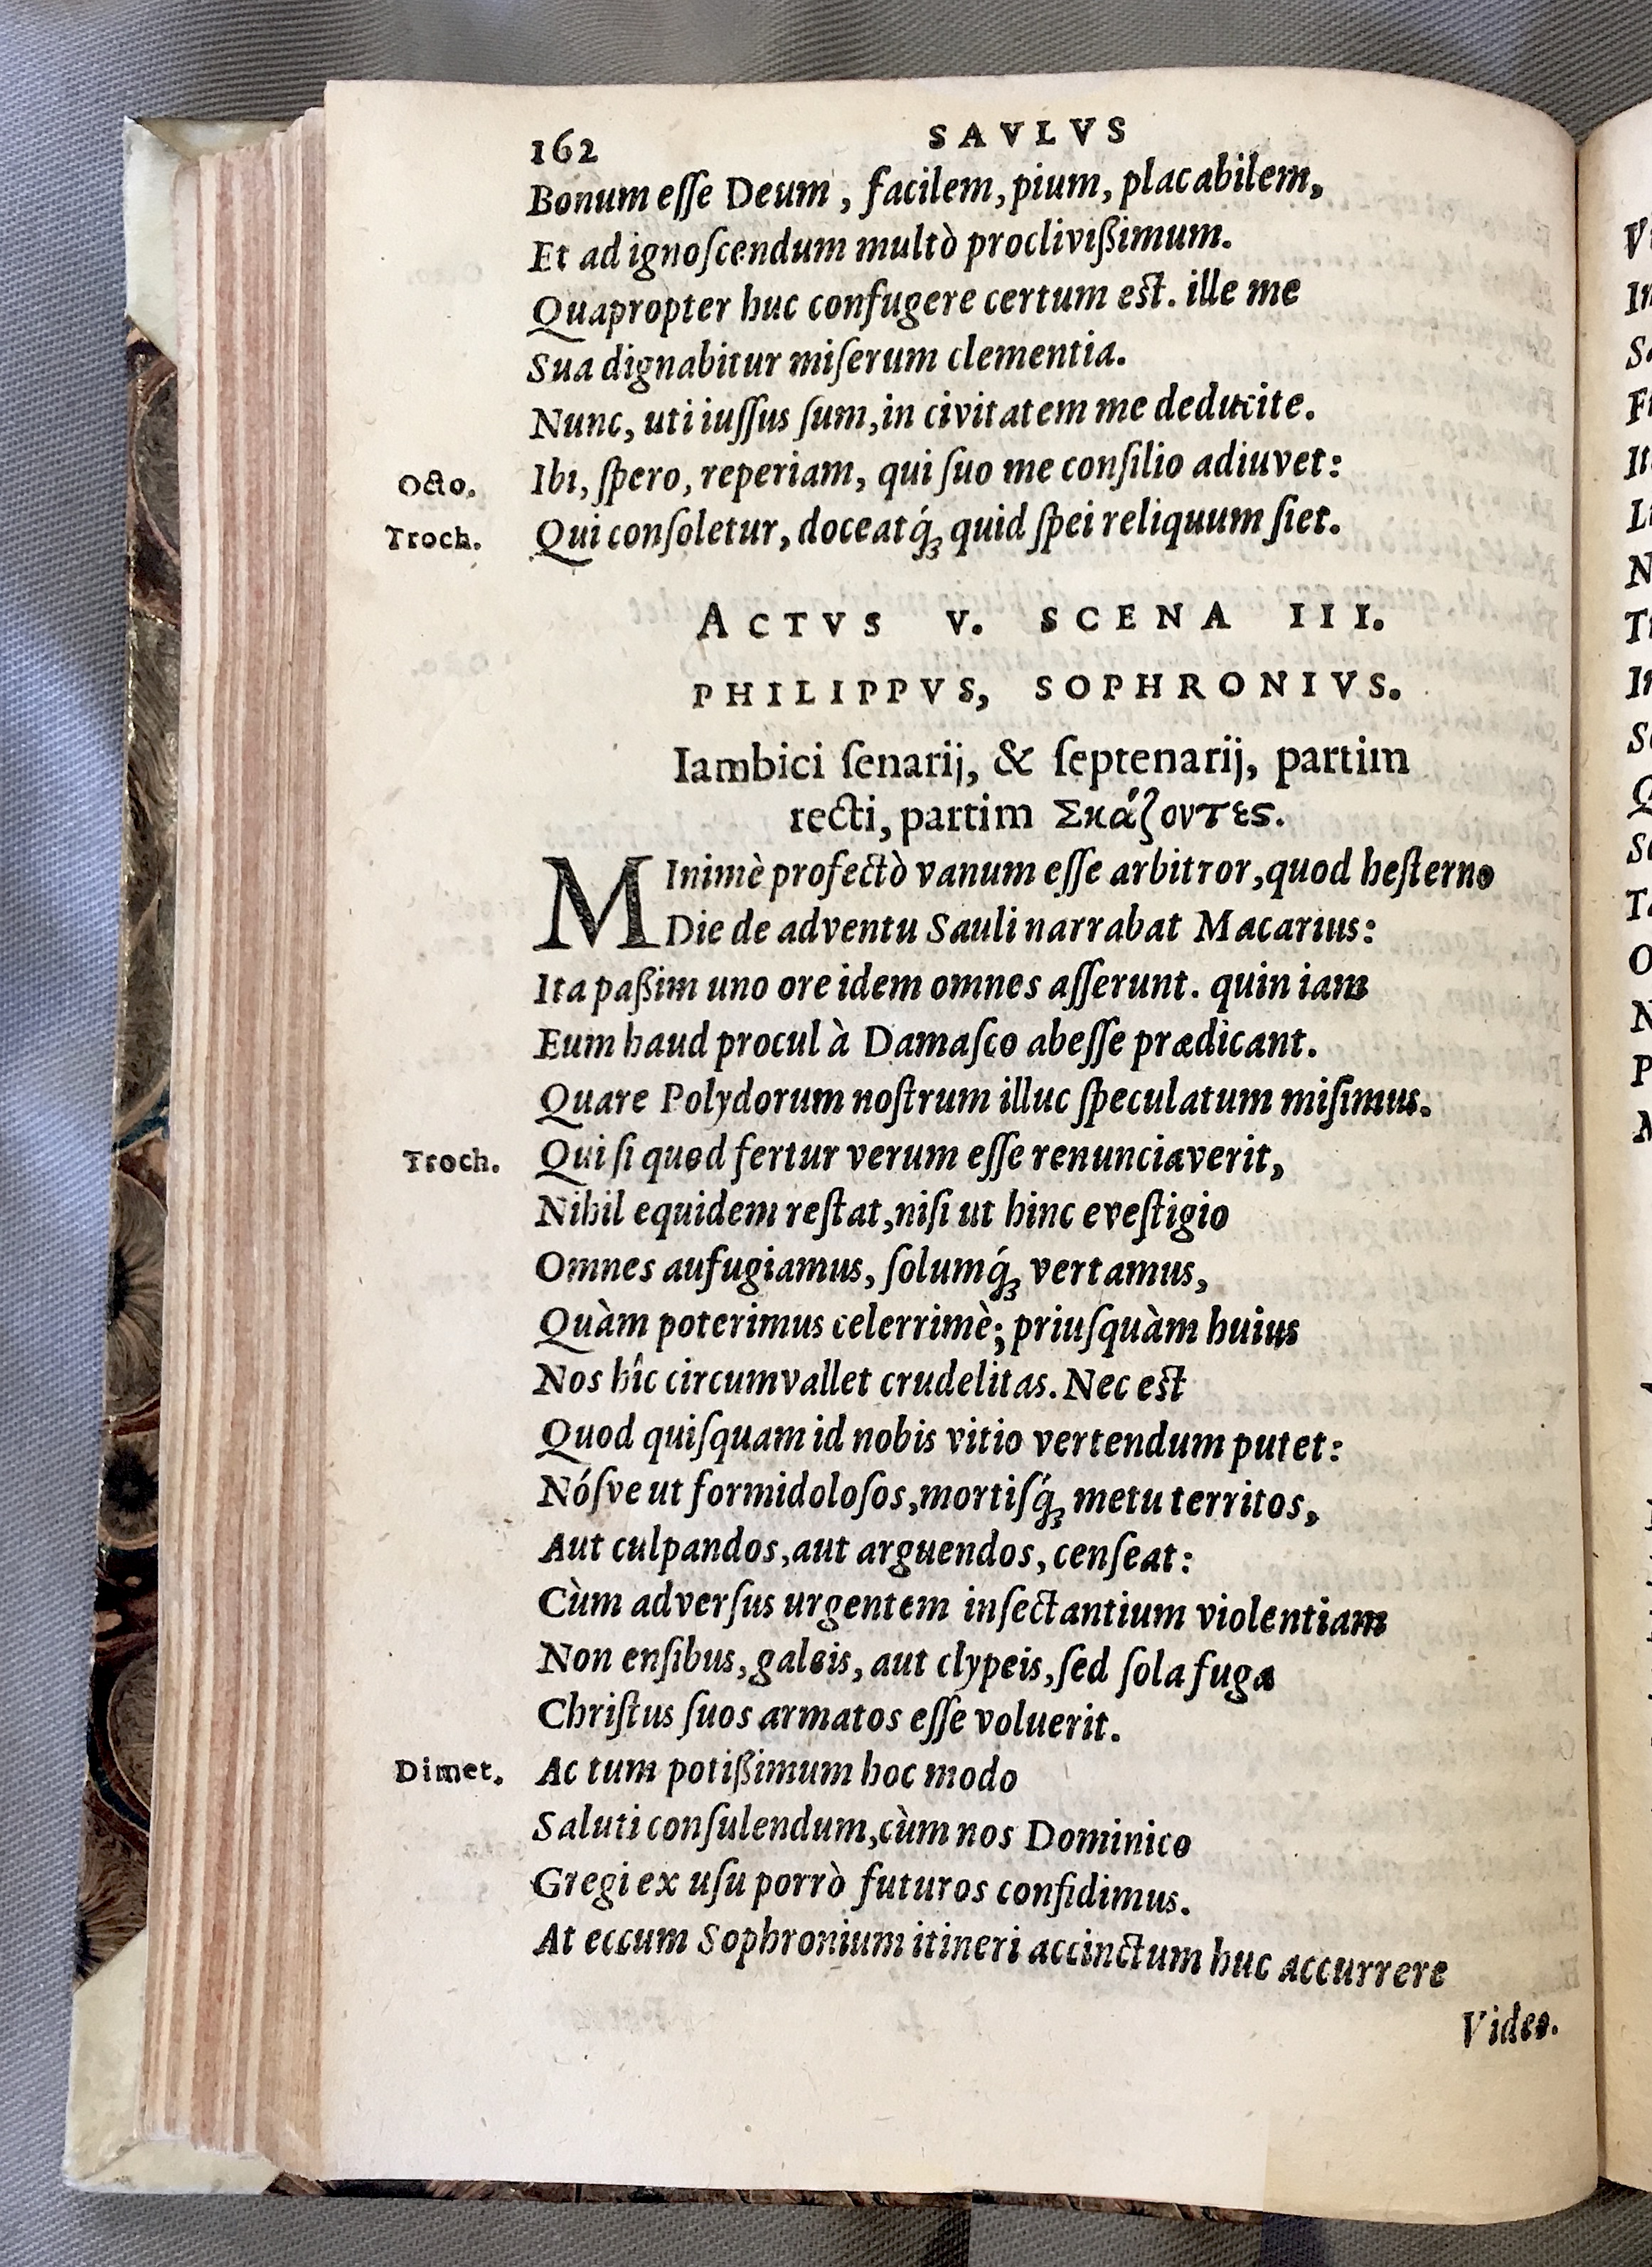 162 SAVLVS
Bonum eſſe Deum, facilem, pium, placabilem,
Et ad ignoſcendum multò proclivißimum.
Quapropter huc confugere certum est. ille me
Sua dignabitur miſerum clementia.
Nunc, uti iuſſus ſum, in civitatem me deducite.
Octo. Ibi, ſpero, reperiam, qui ſuo me conſilio adiuvet:
Troch. Qui conſoletur, doceatq́ꝫ quid ſpei reliquum ſiet.
ACTVS V. SCENA III.
PHILIPPVS, SOPHRONIVS.
Iambici ſenarij, & ſeptenarij, partim
recti, partim Σκάζοντες.
MInimè profectò vanum eſſe arbitror, quod heſterno
Die de adventu Sauli narrabat Macarius:
Ita paßim uno ore idem omnes aſſerunt. quin iam
Eum haud procul à Damaſco abeſſe prædicant.
Quare Polydorum noſtrum illuc ſpeculatum miſimus.
Troch. Qui ſi quod fertur verum eſſe renunciaverit,
Nihil equidem reſtat, niſi ut hinc eveſtigio
Omnes aufugiamus, ſolumq́ꝫ vertamus,
Quàm poterimus celerrimè; priuſquàm huius
Nos hîc circumvallet crudelitas. Nec est
Quod quiſquam id nobis vitio vertendum putet:
Nóſve ut formidoloſos, mortiſq́ꝫ metu territos,
Aut culpandos, aut arguendos, cenſeat:
Cùm adverſus urgentem inſectantium violentiam
Non enſibus, galeis, aut clypeis, ſed ſola fuga
Chriſtus ſuos armatos eſſe voluerit.
Dimet. Ac tum potißimum hoc modo
Saluti conſulendum, cùm nos Dominico
Gregi ex uſu porrò futuros confidimus.
At eccum Sophronium itineri accinctum huc accurrere
Video.